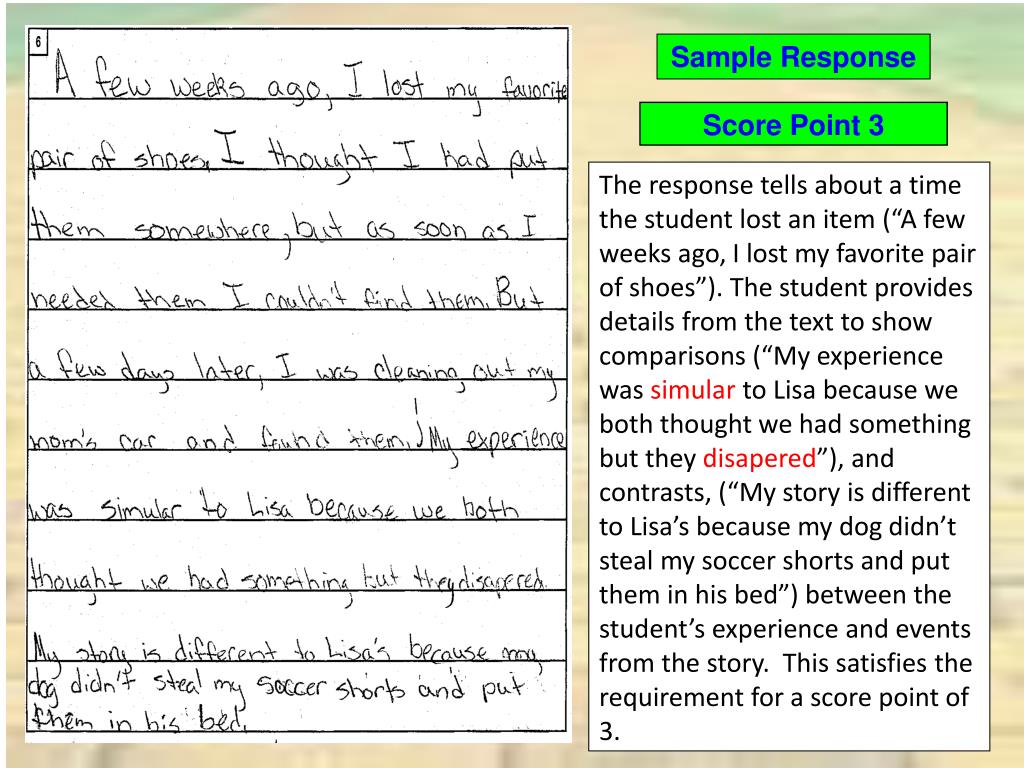 6
A few weeks ago, I lost my favorite
pair of shoes. I thought I had put
them somewhere, but as soon as I
needed them I couldn't find them. But
a few days later, I was cleaning out my
mom's car and found them. My experience
was simular to Lisa because we both
thought we had something but they disapered.
My story is different to Lisa's because my
dog didn't steal my soccer shorts and put
them in his bed.
Sample Response
Score Point 3
The response tells about a time
the student lost an item (“A few
weeks ago, I lost my favorite pair
of shoes”). The student provides
details from the text to show
comparisons (“My experience
was simular to Lisa because we
both thought we had something
but they disapered”), and
contrasts, (“My story is different
to Lisa’s because my dog didn’t
steal my soccer shorts and put
them in his bed”) between the
student’s experience and events
from the story.  This satisfies the
requirement for a score point of
3.